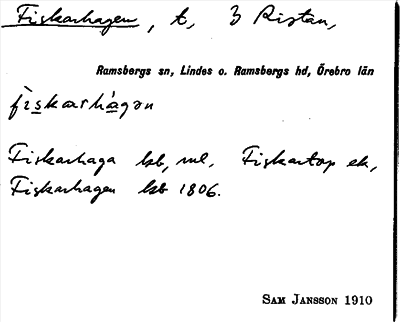 Fiskarhagen, t, 3 Ristan,
Ramsbergs sn, Lindes o. Ramsbergs hd, Örebro län
fìskarhágən
Fiskarhaga kb, ml, Fiskartop ek,
Fiskarhagen kb 1806.
SAM JANSSON 1910